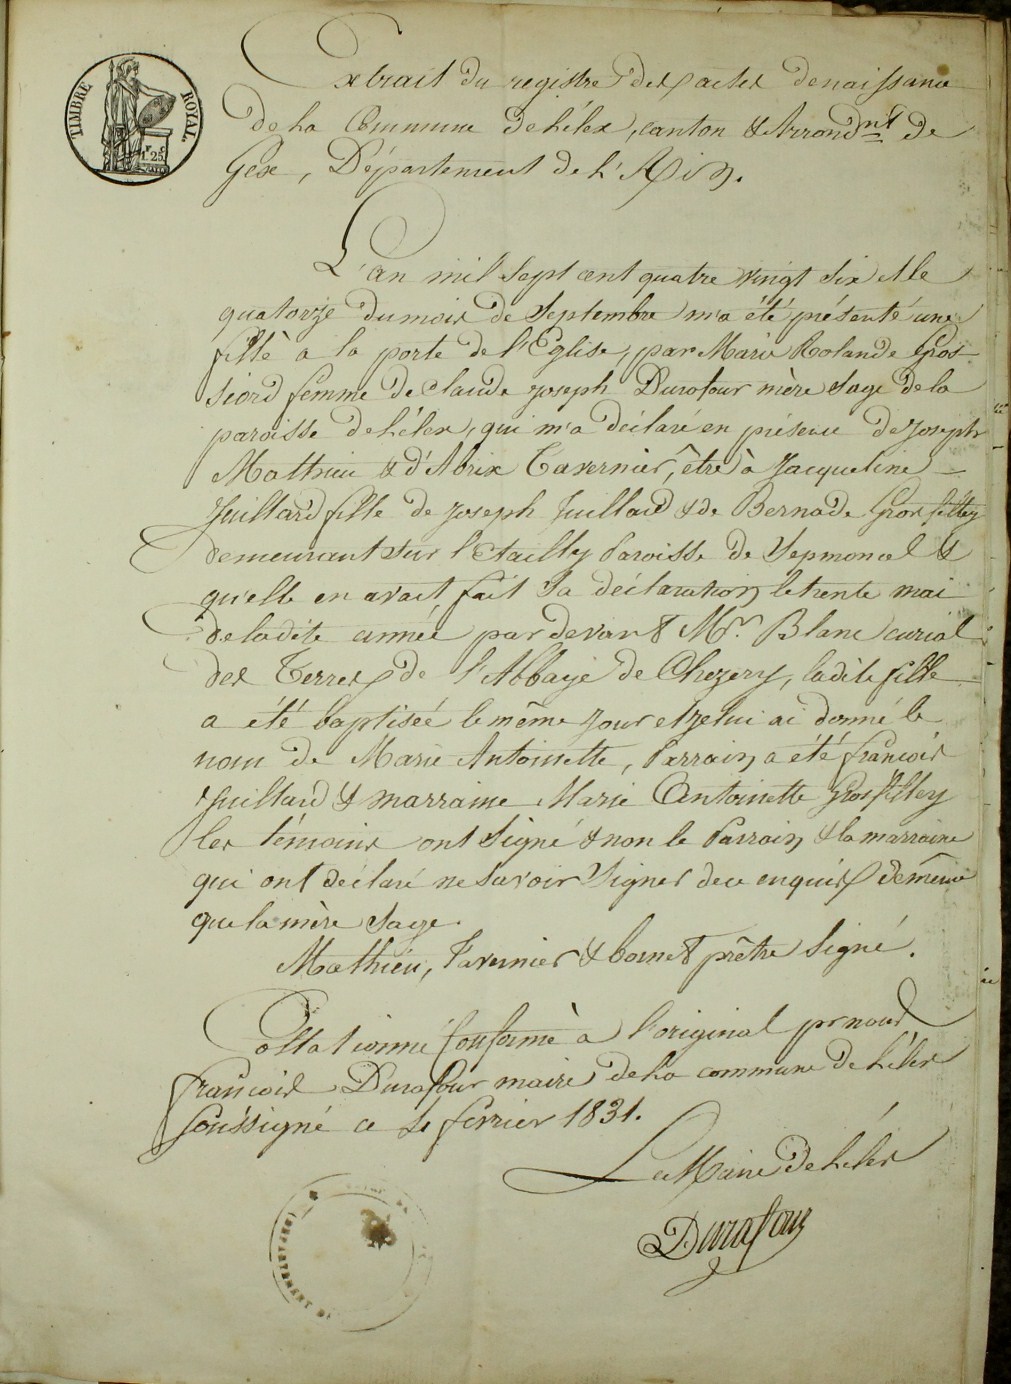 TIMBRE ROYAL
1F 25c
Extrait du registre des actes de naissance
De la Commune de Lélex, canton & Arrondnt de
Gex, Département de l'Ain.
L'an mil sept cent quatre vingt six et le
quatorze du mois de Septembre m'a été présenté une
fille à la porte de l'Eglise, par Marie Rolande Gros-
siord femme de Claude Joseph Durafour mère sage de la
paroisse de Lélex, qui m'a déclaré en présence de Joseph
Mathieu & d'Abrix Tavernier, être à Jacqueline
Juillard fille de Joseph Juillard & de Bernade Grosfilley
demeurant sur l'Etailly Paroisse de Sepmoncel &
qu'elle en avait fait sa déclaration le trente mai
de ladite année par devant Mr. Blanc curial
des Terres de l'Abbaye de Chezery, ladite fille
a été baptiseé le même jour et je lui ai donné le
nom de Marie Antoinette, Parrain a été françois
Juillard & marraine Marie Antoinette Grosfilley
les témoins ont signé & non le Parrain & la marraine
qui ont déclaré ne savoir signer de ce enquis de même
que la mère sage.
Mathieu, Tavernier & Cornet prêtre signé.
Collationné conforme à l'original pr nous
françois Durafour maire de la commune de Lélex
soussigné ce février 1831.
Le Maire de Lélex
Durafour